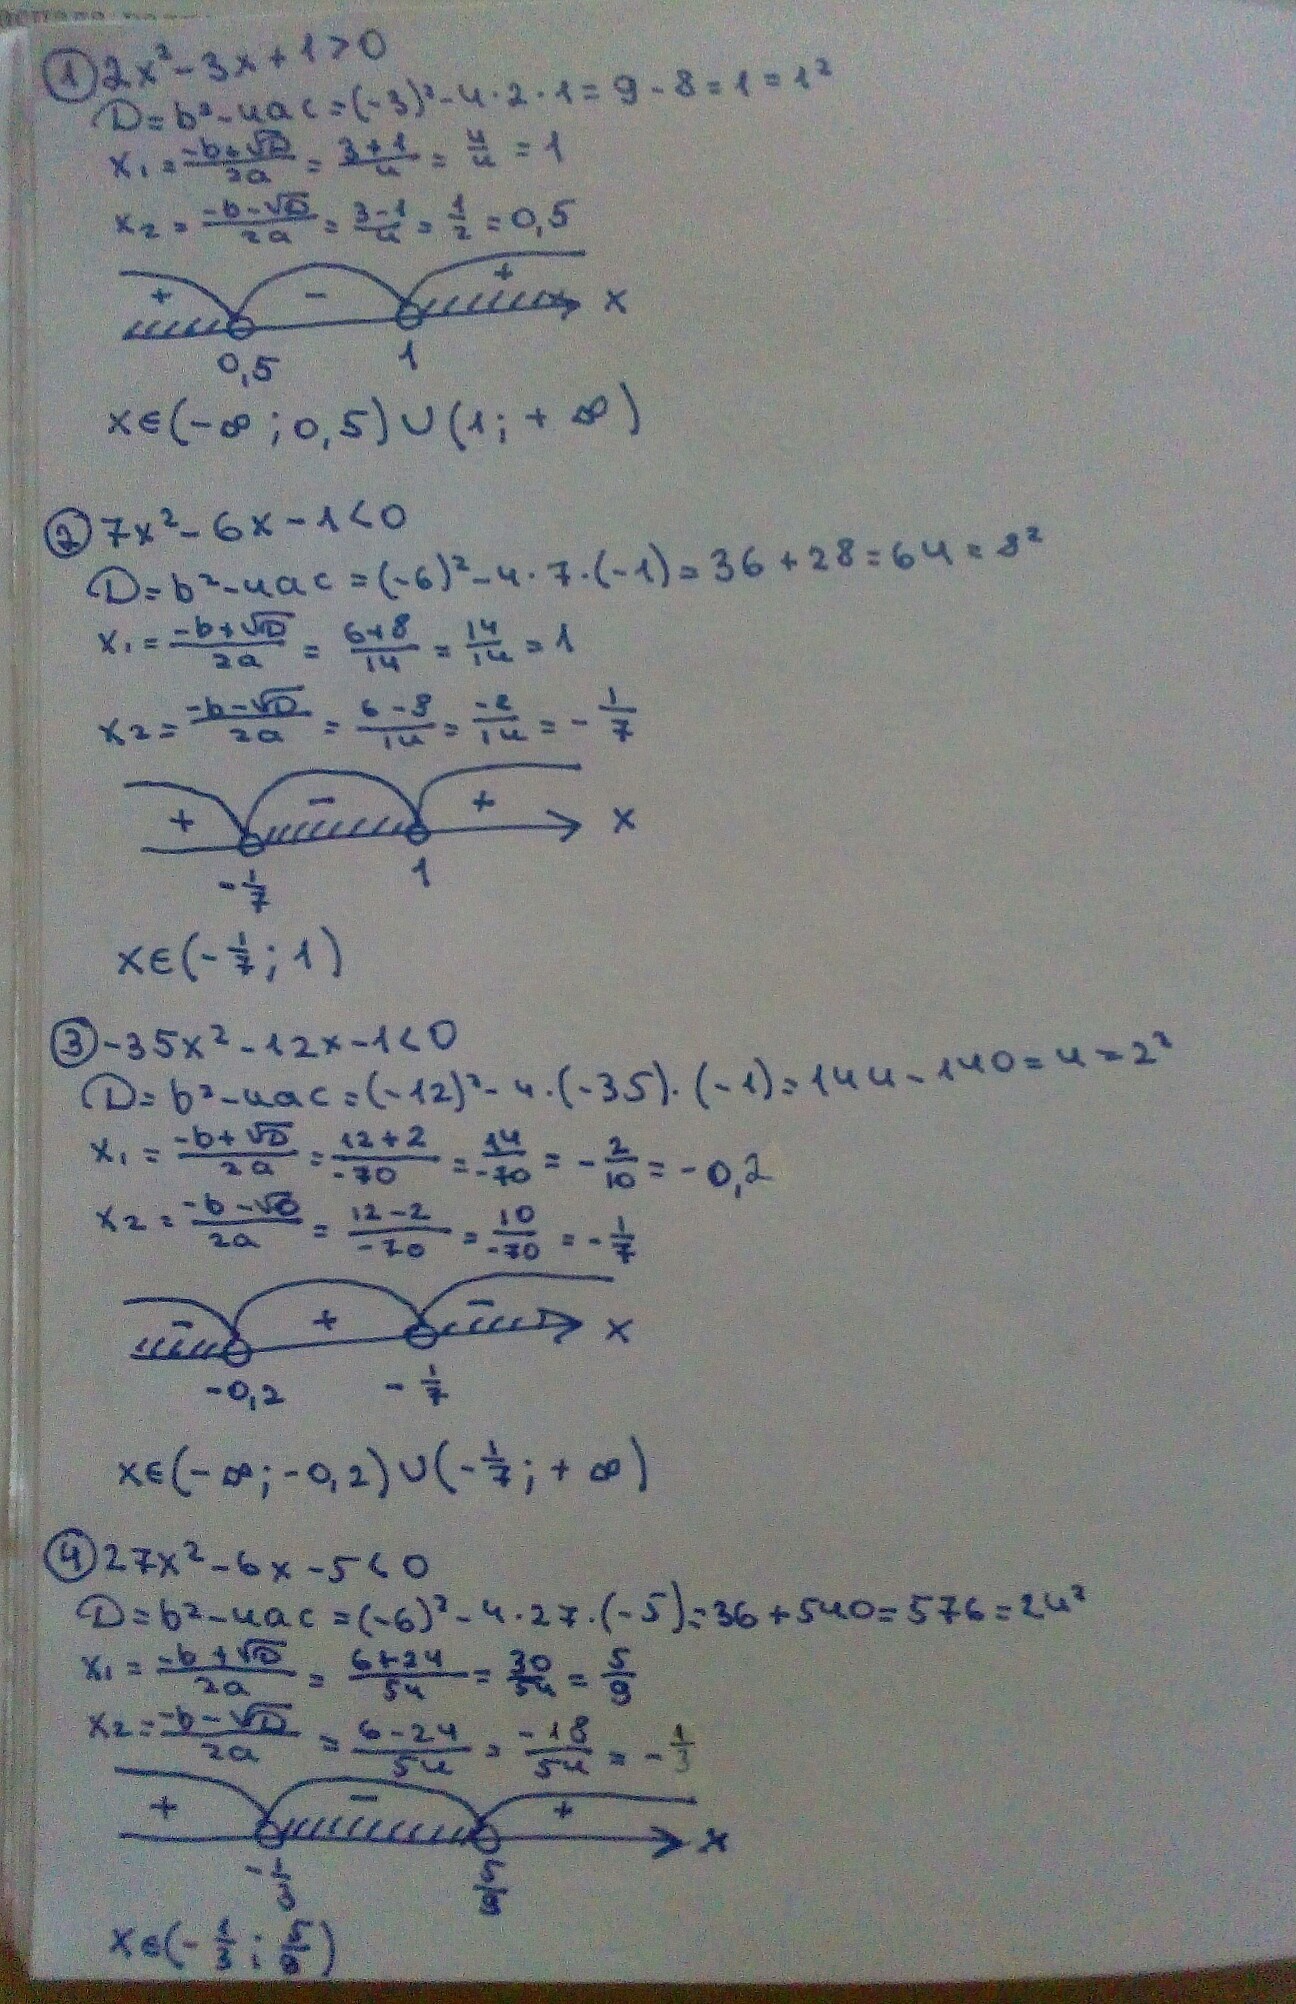 ① 2x² - 3x + 1 > 0
D = b² - 4ac = (-3)² - 4 · 2 · 1 = 9 - 8 = 1 = 1²
x₁ = (-b + √D)/2a = (3 + 1)/4 = 4/4 = 1
x₂ = (-b - √D)/2a = (3 - 1)/4 = 1/2 = 0,5
+ - + x
0,5 1
x ∈ (-∞; 0,5) ∪ (1; +∞)
② 7x² - 6x - 1 < 0
D = b² - 4ac = (-6)² - 4 · 7 · (-1) = 36 + 28 = 64 = 8²
x₁ = (-b + √D)/2a = (6 + 8)/14 = 14/14 = 1
x₂ = (-b - √D)/2a = (6 - 8)/14 = -2/14 = -1/7
+ - + x
-1/7 1
x ∈ (-1/7; 1)
③ -35x² - 12x - 1 < 0
D = b² - 4ac = (-12)² - 4 · (-35) · (-1) = 144 - 140 = 4 = 2²
x₁ = (-b + √D)/2a = (12 + 2)/-70 = 14/-70 = -2/10 = -0,2
x₂ = (-b - √D)/2a = (12 - 2)/-70 = 10/-70 = -1/7
- + - x
-0,2 -1/7
x ∈ (-∞; -0,2) ∪ (-1/7; +∞)
④ 27x² - 6x - 5 < 0
D = b² - 4ac = (-6)² - 4 · 27 · (-5) = 36 + 540 = 576 = 24²
x₁ = (-b + √D)/2a = (6 + 24)/54 = 30/54 = 5/9
x₂ = (-b - √D)/2a = (6 - 24)/54 = -18/54 = -1/3
+ - + x
-1/3 5/9
x ∈ (-1/3; 5/9)